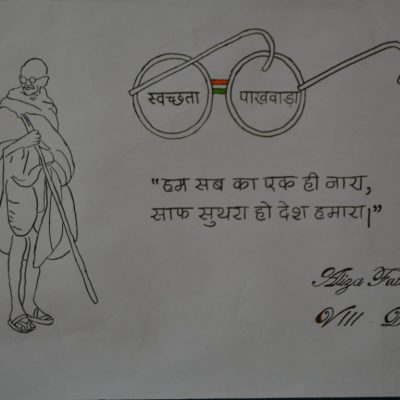 स्वच्छता पाखवाड़ा
"हम सब का एक ही नारा,
साफ सुथरा हो देश हमारा।"
Aliza
VIII